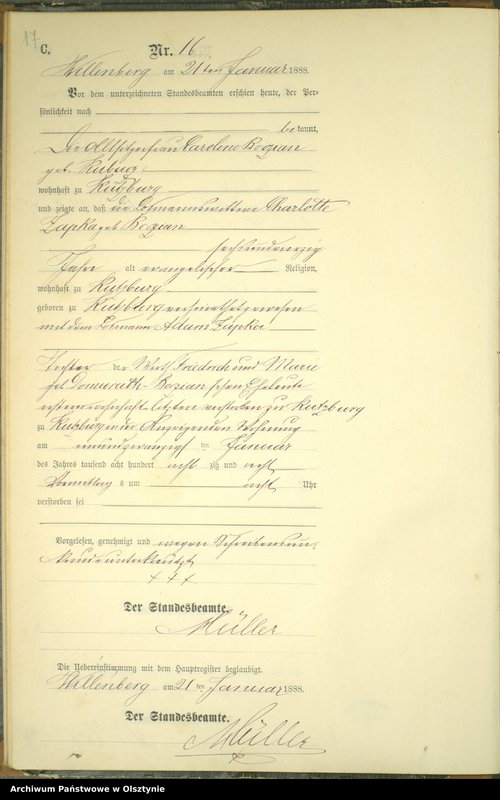 17
C.
Nr. 16
Willenberg am 21ten Januar 1888.
Vor dem unterzeichneten Standesbeamten erschien heute, der Per-
sönlichkeit nach
be kannt,
die Altsitzerfrau Caroline Bozian
geb.
wohnhaft zu Kutzburg
und zeigte an, daß die Losmannswittwe Charlotte
Zapka geb. Bozian
sechsundvierzig
Jahre alt evangelischer Religion,
wohnhaft zu Kutzburg
geboren zu Kutzburg verheirathet gewesen
mit dem Losmann Adam Zapka
Tochter der Wirth Friedrich und Marie
geb. Bozian'schen Eheleute
letztere verstorben zu Kutzburg
zu Kutzburg in der Anzeigenden Wohnung
am ten Januar
des Jahres tausend acht hundert acht zig und acht
Vormittags um acht Uhr
verstorben sei
Vorgelesen, genehmigt und wegen Schreibensun-
kunde unterkreuzt
+ + +
Der Standesbeamte.
Müller
Die Uebereinstimmung mit dem Hauptregister beglaubigt.
Willenberg am 21 ten Januar 1888.
Der Standesbeamte.
Müller
Archiwum Państwowe w Olsztynie